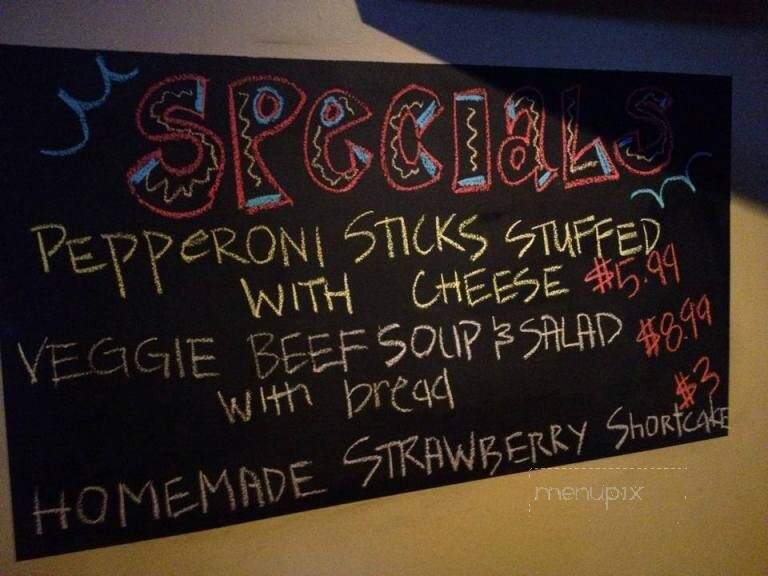 SPeCIaLS
PEPPERONI STICKS STUFFED
WITH CHEESE $5.99
VEGGIE BEEF SOUP & SALAD $8.99
with bread
$3
HOMEMADE STRAWBERRY ShortcakE
menupix